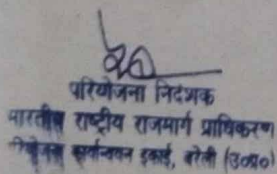 परियोजना निदेशक
भारतीय राष्ट्रीय राजमार्ग प्राधिकरण
कार्यान्वयन इकाई, बरेली (उ०प्र०)